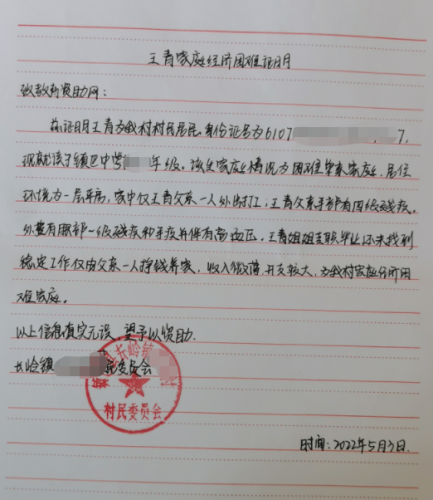 王青家庭经济困难证明
资助网：
兹证明王青为我村村民居民，身份证名为6107 7，
现就读于镇巴中学 年级，该生家庭情况为困难单亲家庭，居住
环境为一层平房，家中仅王青父亲一人外出打工，王青父亲手部有四级残疾，
外婆有眼部一级残疾和手疾并伴有高血压。王青姐姐主职毕业还未找到
稳定工作仅由父亲一人挣钱养家，收入微薄，开支较大，为我村家庭经济困
难家庭。
以上信息真实无误，望予以资助。
长岭镇 委员会
长岭镇
村民委员会
时间：2022年5月3日.